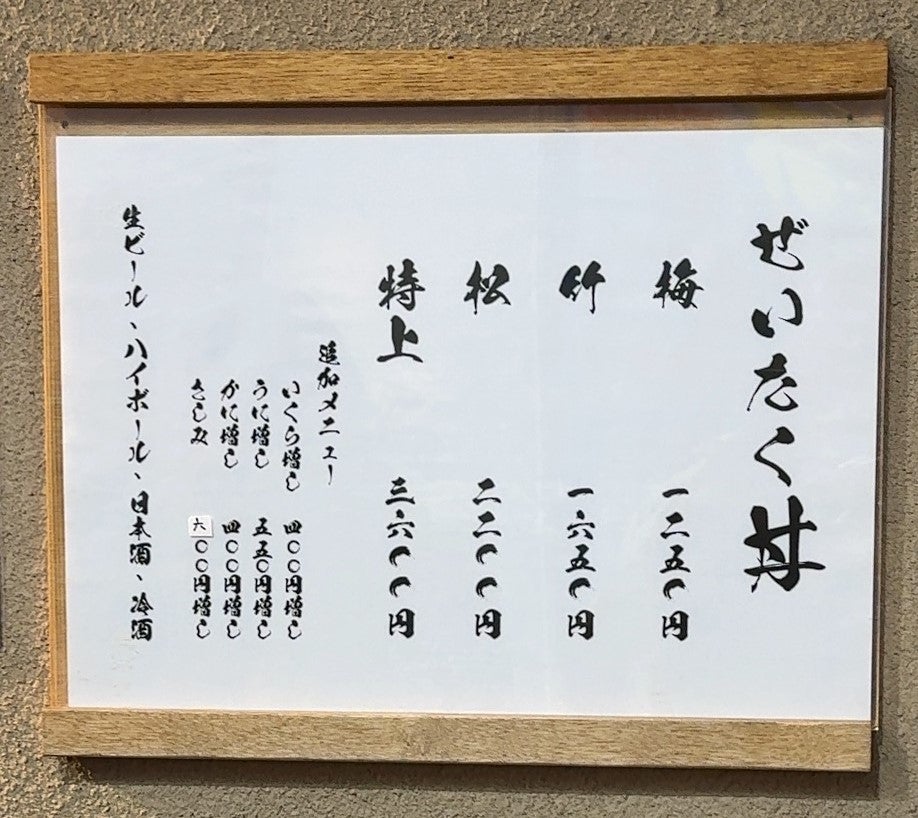 ぜいたく丼
梅 一二五〇円
竹 一六五〇円
松 二二〇〇円
特上 三六〇〇円
追加メニュー
いくら増し 四〇〇円増し
うに増し 五五〇円増し
かに増し 四〇〇円増し
さしみ 六〇〇円増し
生ビール、ハイボール、日本酒、冷酒